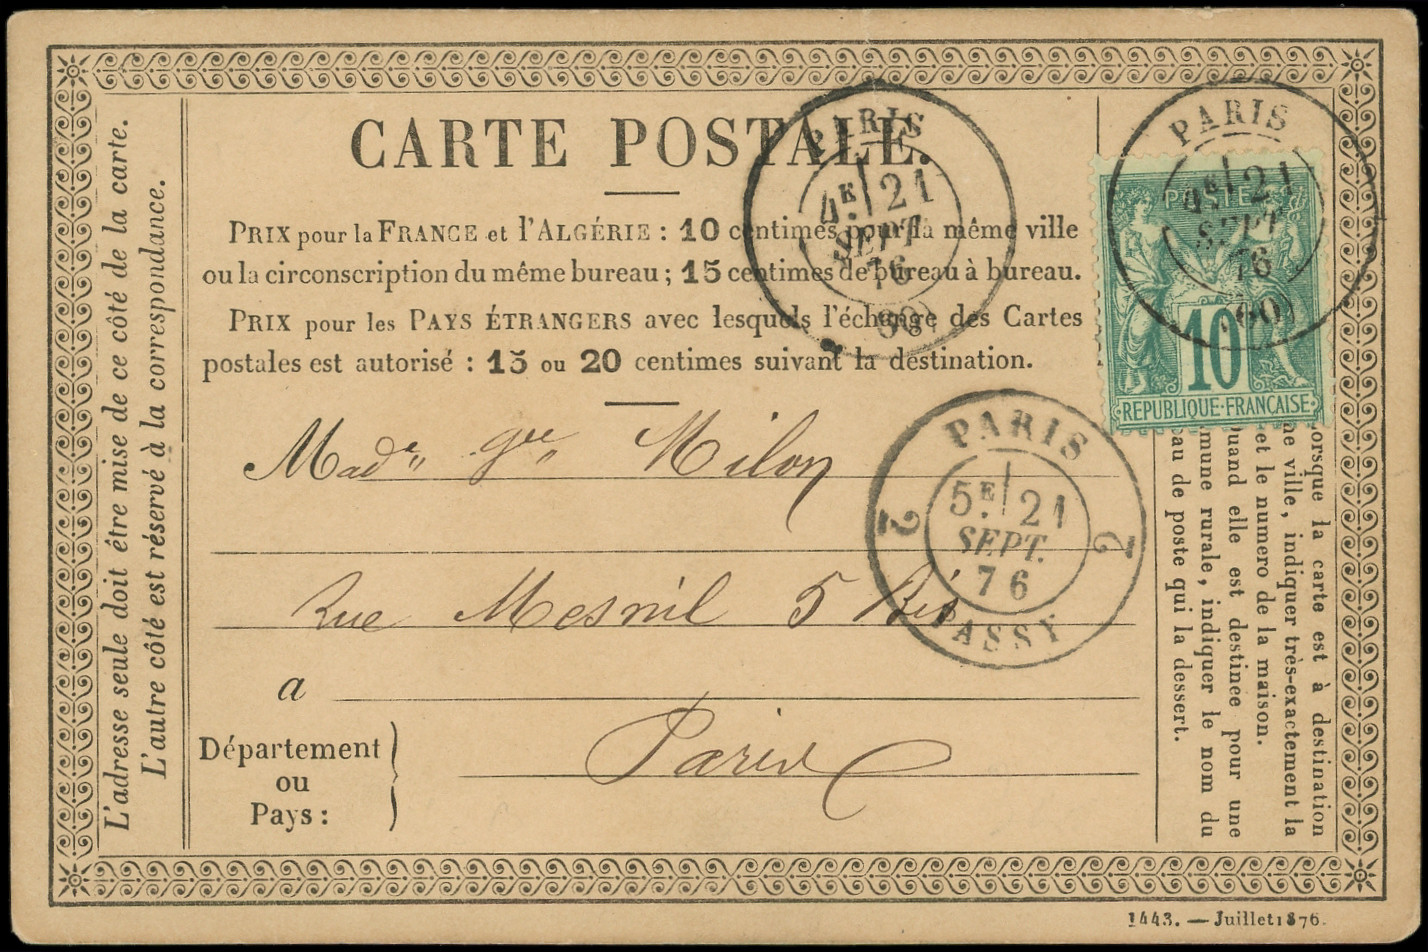 CARTE POSTALE.
PRIX pour la FRANCE et l'ALGÉRIE : 10 centimes pour la même ville
ou la circonscription du même bureau ; 15 centimes de bureau à bureau.
PRIX pour les PAYS ÉTRANGERS avec lesquels l'échange des Cartes
postales est autorisé : 15 ou 20 centimes suivant la destination.
L'adresse seule doit être mise de ce côté de la carte.
L'autre côté est réservé à la correspondance.
PARIS
4E 21
SEPT.
76
(60)
PARIS
4E 21
SEPT.
76
(60)
POSTES
10
REPUBLIQUE·FRANÇAISE
PARIS
5E 21
SEPT.
76
2 2
PASSY
Made Milon
rue Mesnil 5 Bis
a
Département
ou
Pays :
Paris
lorsque la carte est à destination
ne ville, indiquer très-exactement la
et le numero de la maison.
Quand elle est destinee pour une
mune rurale, indiquer le nom du
eau de poste qui la dessert.
1443. — Juillet 1876.